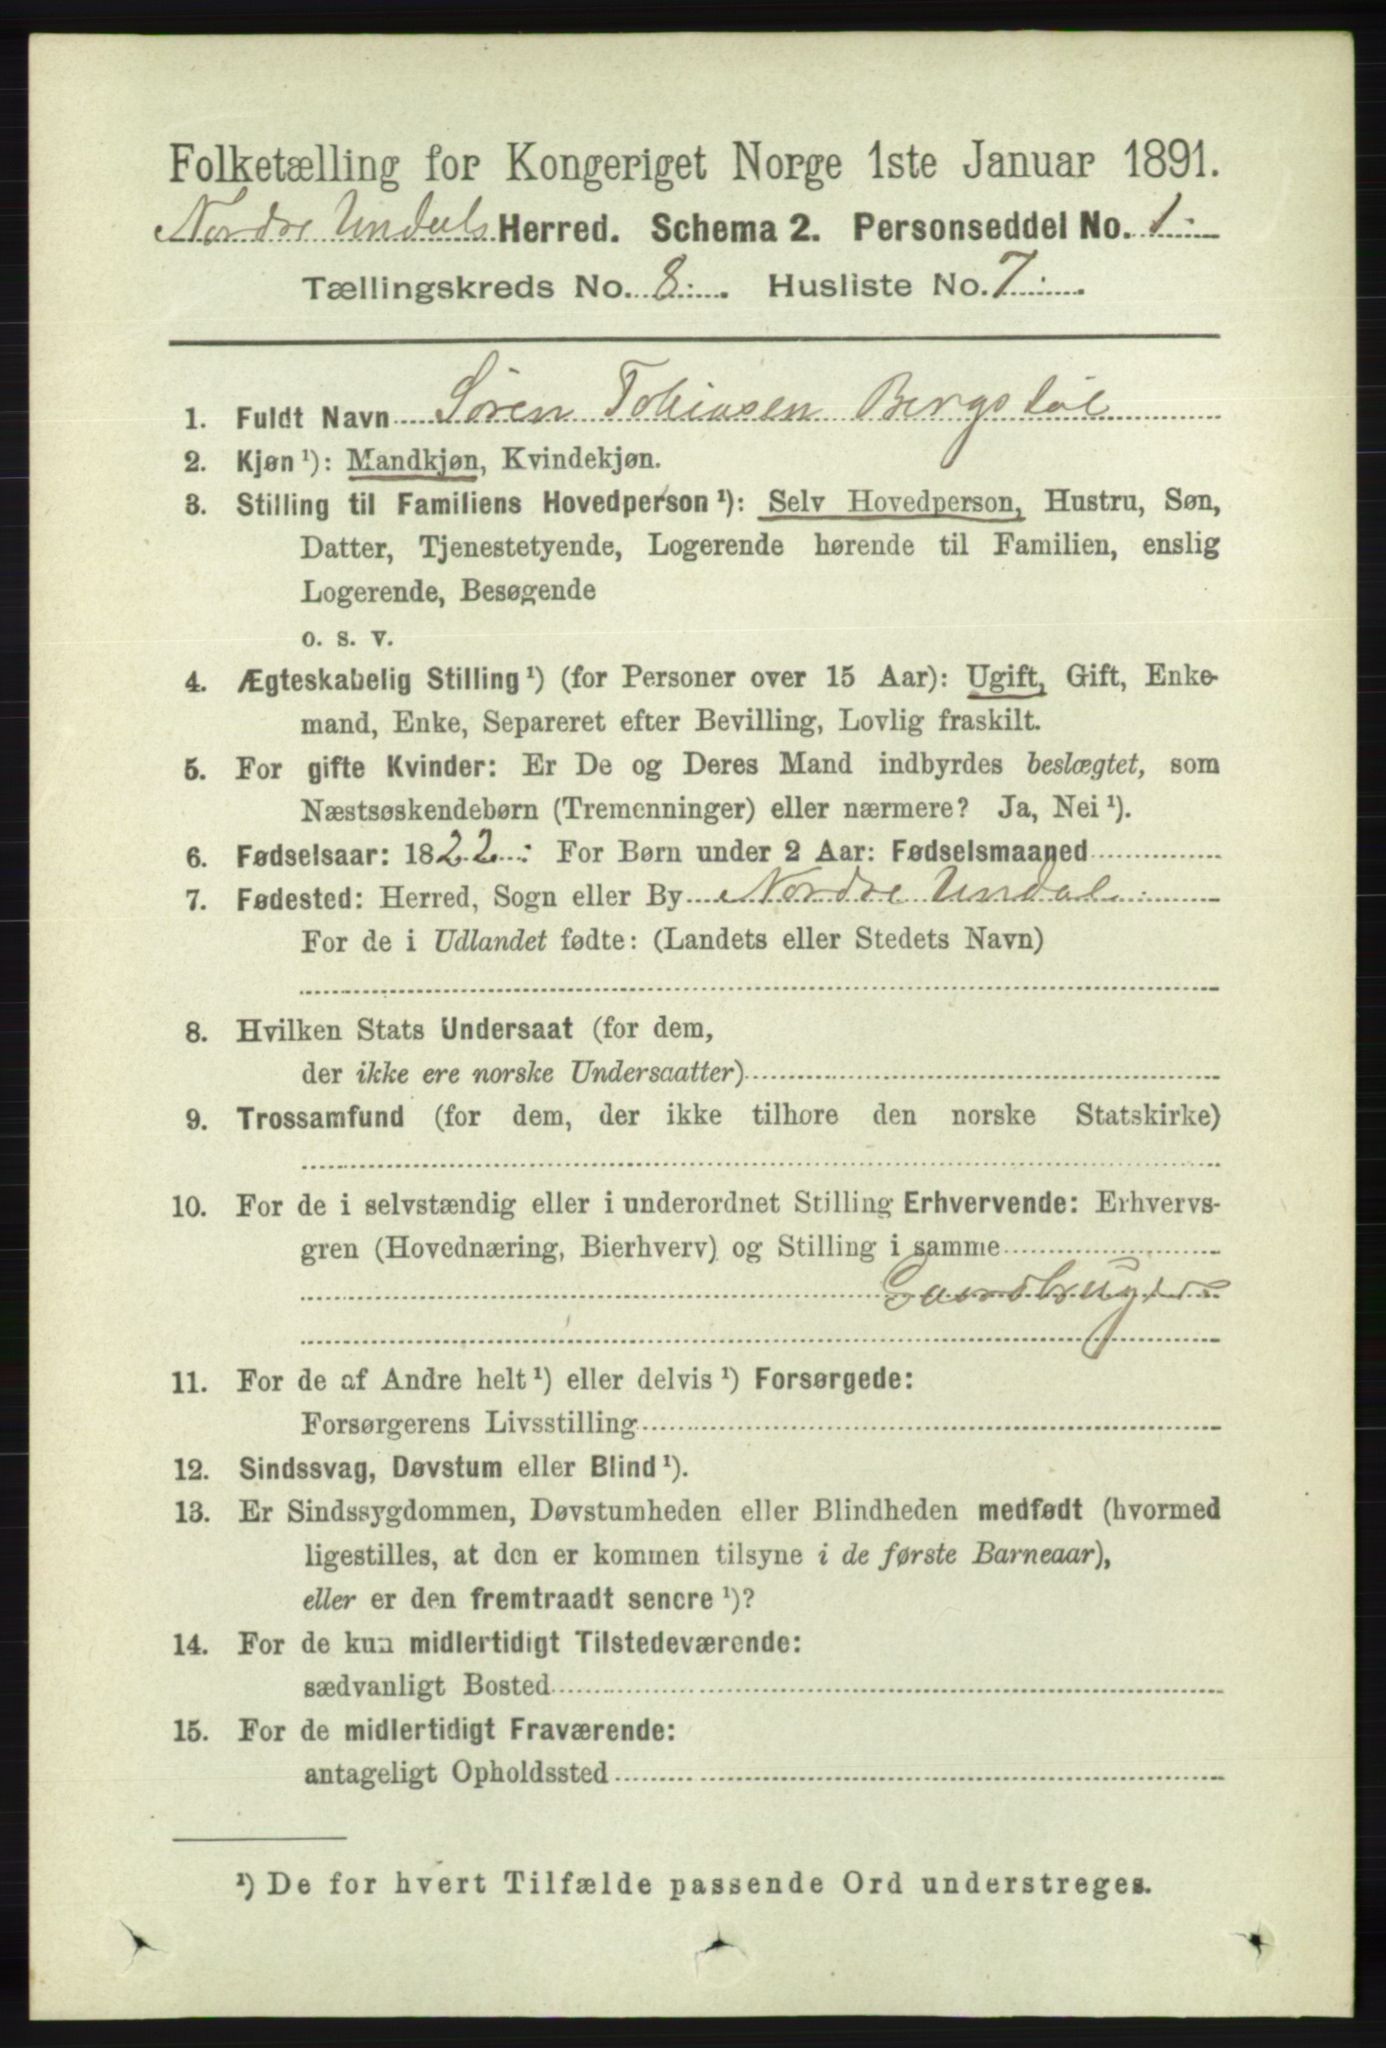 Folketælling for Kongeriget Norge 1ste Januar 1891.
Nordre Undals Herred. Schema 2. Personseddel No. 1.
Tællingskreds No. 8. Husliste No. 7.
1. Fuldt Navn Sören Tobiasen Bergstöl
2. Kjøn ¹): Mandkjøn, Kvindekjøn.
3. Stilling til Familiens Hovedperson ¹): Selv Hovedperson, Hustru, Søn,
Datter, Tjenestetyende, Logerende hørende til Familien, enslig
Logerende, Besøgende
o. s. v.
4. Ægteskabelig Stilling ¹) (for Personer over 15 Aar): Ugift, Gift, Enke-
mand, Enke, Separeret efter Bevilling, Lovlig fraskilt.
5. For gifte Kvinder: Er De og Deres Mand indbyrdes beslægtet, som
Næstsøskendebørn (Tremenninger) eller nærmere? Ja, Nei ¹).
6. Fødselsaar: 1822. For Børn under 2 Aar: Fødselsmaaned
7. Fødested: Herred, Sogn eller By Nordre Undal
For de i Udlandet fødte: (Landets eller Stedets Navn)
8. Hvilken Stats Undersaat (for dem,
der ikke ere norske Undersaatter)
9. Trossamfund (for dem, der ikke tilhøre den norske Statskirke)
10. For de i selvstændig eller i underordnet Stilling Erhvervende: Erhvervs-
gren (Hovednæring, Bierhverv) og Stilling i samme
Gaardbruger
11. For de af Andre helt ¹) eller delvis ¹) Forsørgede:
Forsørgerens Livsstilling
12. Sindssvag, Døvstum eller Blind ¹).
13. Er Sindssygdommen, Døvstumheden eller Blindheden medfødt (hvormed
ligestilles, at den er kommen tilsyne i de første Barneaar),
eller er den fremtraadt senere ¹)?
14. For de kun midlertidigt Tilstedeværende:
sædvanligt Bosted
15. For de midlertidigt Fraværende:
antageligt Opholdssted
¹) De for hvert Tilfælde passende Ord understreges.